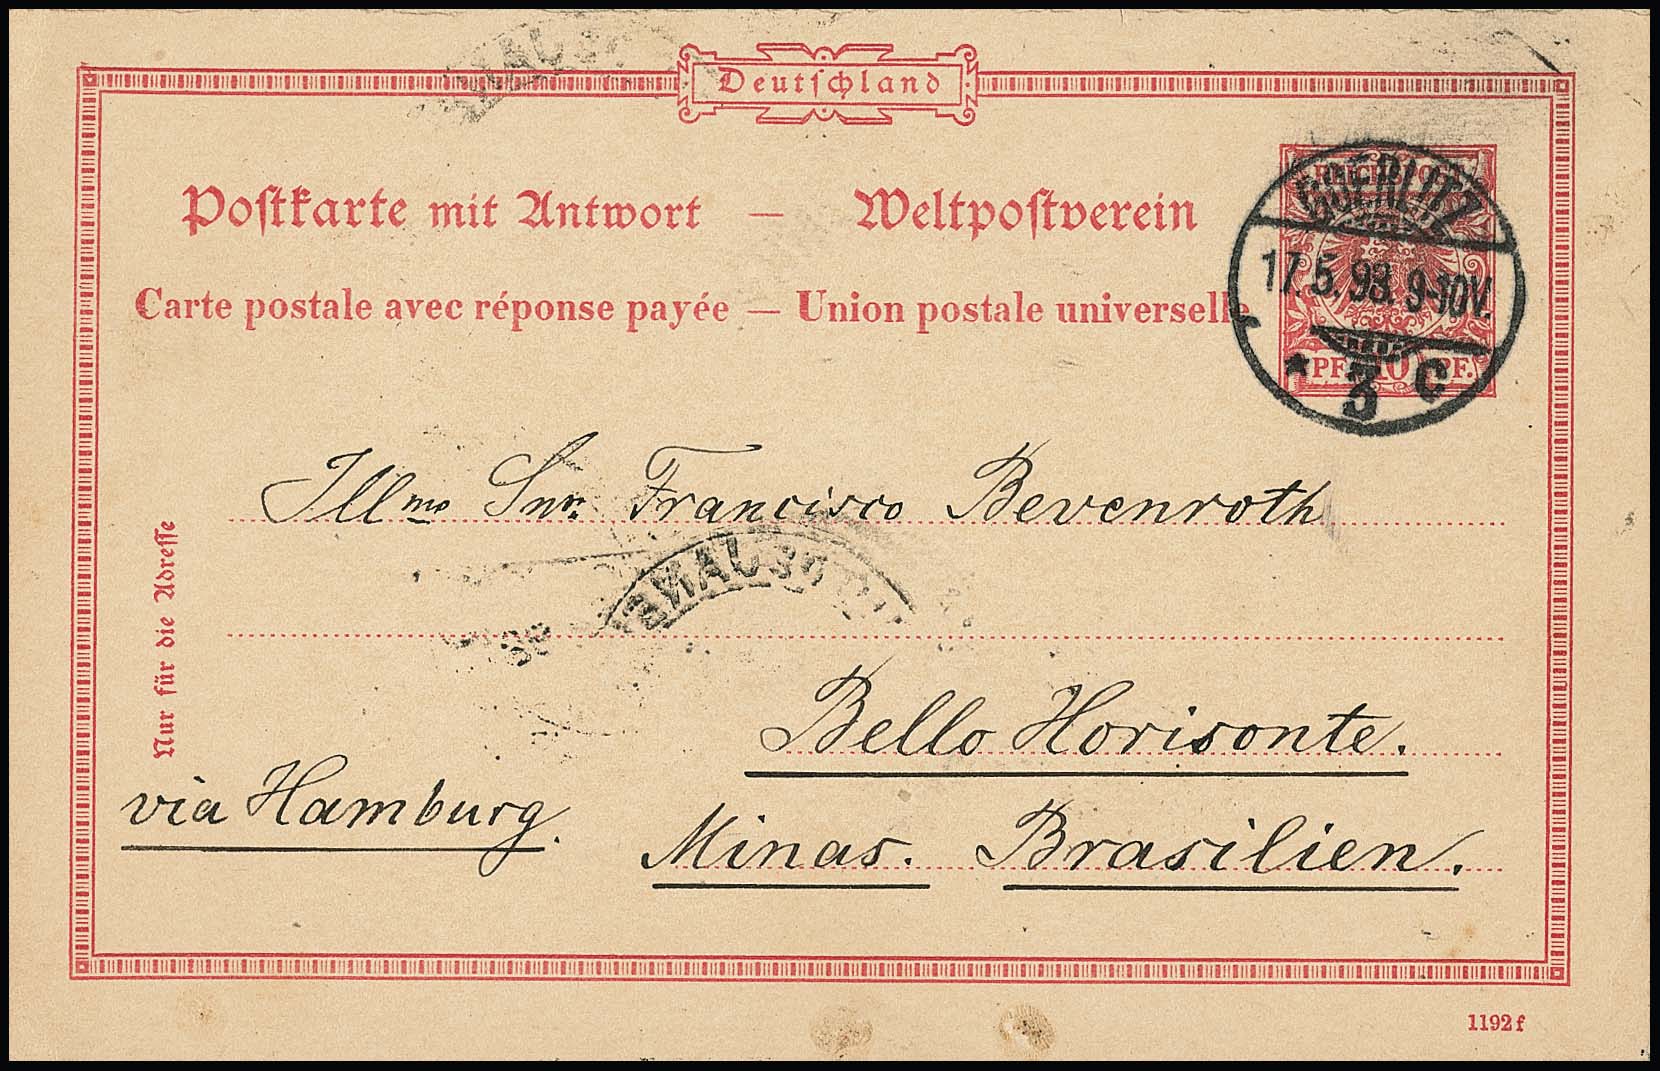 Deutschland
Postkarte mit Antwort — Weltpostverein
Carte postale avec réponse payée — Union postale universelle
GOERLITZ
17.5.98. 9-10V.
* 3 C
PF. 10 PF.
Illmo Snr. Francisco Bevenroth
Nur für die Adresse
Bello Horisonte.
via Hamburg.
Minas. Brasilien.
1192 f